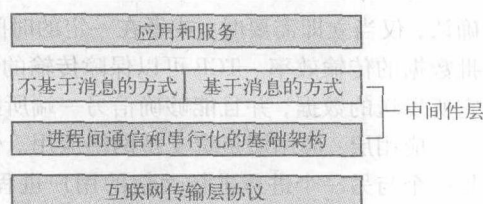 应用和服务
不基于消息的方式 基于消息的方式
中间件层
进程间通信和串行化的基础架构
互联网传输层协议